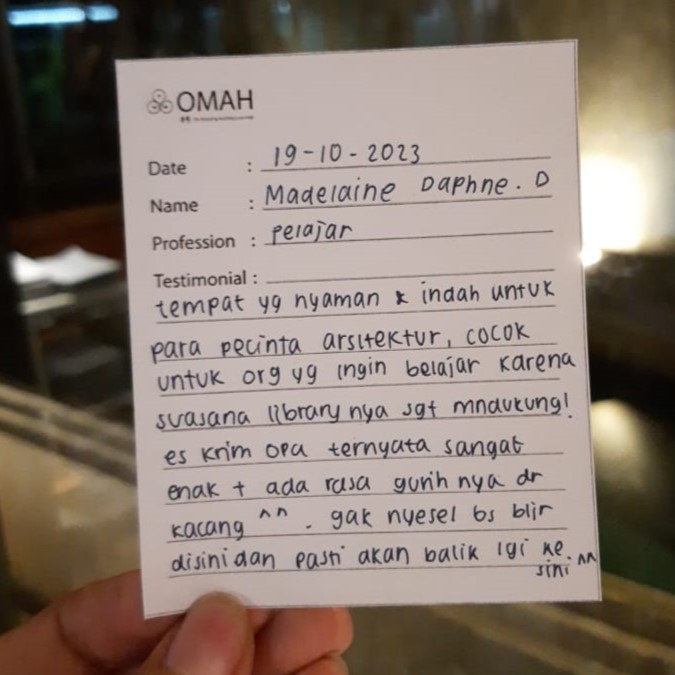 OMAH
Date : 19-10-2023
Name : Madelaine Daphne. D
Profession : pelajar
Testimonial :
tempat yg nyaman & indah untuk
para pecinta arsitektur, cocok
untuk org yg ingin belajar karena
suasana library nya sgt mndukung!
es krim opa ternyata sangat
enak + ada rasa gurih nya dr
kacang ^^ . gak nyesel bs bljr
disini dan pasti akan balik lgi ke.
sini ^^